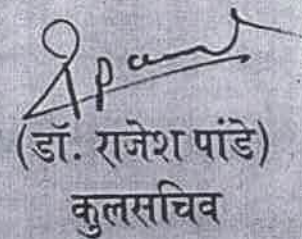 (डॉ. राजेश पांडे)
कुलसचिव